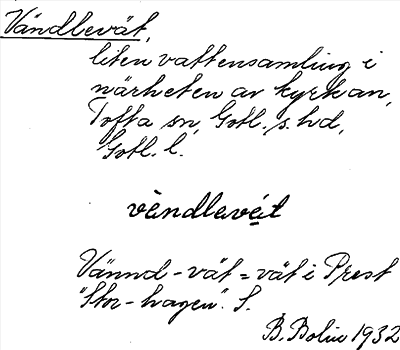 Vändlevät,
liten vattensamling i
närheten av kyrkan,
Tofta sn, Gotl. s. hd,
Gotl. l.
vèndlevét
Vännd-vät = vät i Prest
"Stor-hagen". S.
B. Bolin 1932